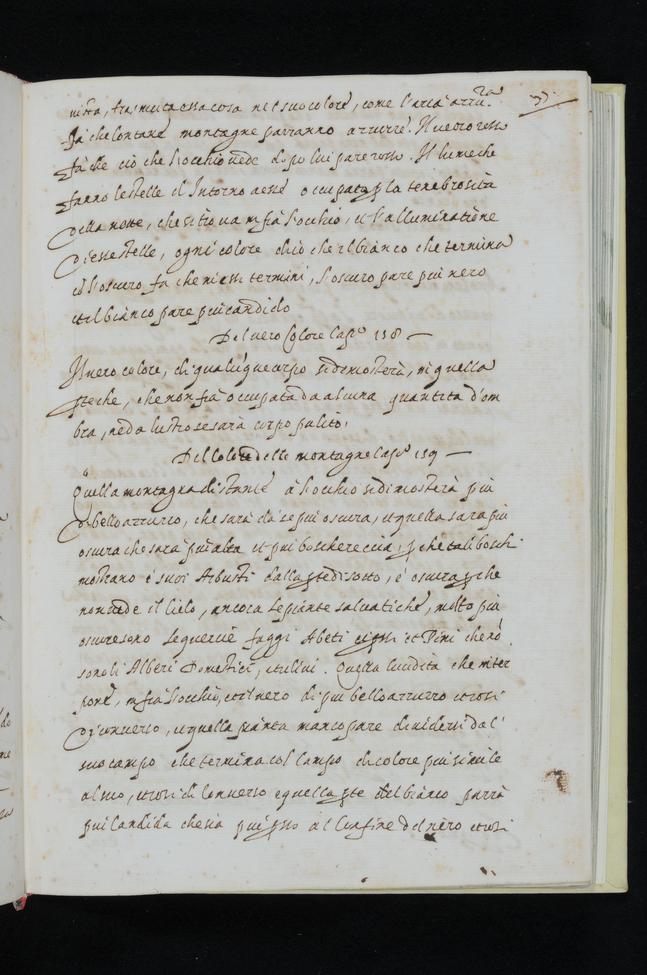 uista, trasmuta essa cosa nel suo colore, come l'aria azzura
fà che lontane montagne parranno azzurre. Il uetro rosso
fà che ciò che l'occhio uede dopo lui pare rosso. Il lume che
fanno le stelle il Intorno a esse occupato p la tenebrosità
della notte, che si troua in frà l'occhio, et l'alluminatione
d'esse stelle, ogni colore che il bianco che termina
cõ l'oscuro fa che ne essi termini, l'oscuro pare piu nero
et il bianco pare piu candido
Del uero Colore Capo 158
Il uero colore, di qualũque corpo si dimosterà, in quella
parte, che non fia occupata da alcuna quantità d'om
bra, ne da lustro se sarà corpo pulito.
Del Colore delle montagne Capo 159
Quella montagna distante à l'occhio si dimosterà piu
di bello azzurro, che sarà da se piu oscura, et quella sara piu
oscura che sarà piu alta et piu boschereccia, p che tali boschi
mostrano i suoi Arbusti dalla pte di sotto, è oscura p che
non uede il Cielo, ancora le piante saluatiche, molto piu
oscure sono le quercie faggi Abeti et Pini che nõ
sono li Alberi Domestici, et uliui. Quella lucidità che inter
pone, in frà l'occhio, et il nero di piu bello azzurro et cosi
d'conuerso, et quella pianta manco pare diuidersi dal'
suo campo che termina col Campo di colore piu simile
al suo, et cosi di Conuerso e quella pte del bianco parrà
piu Candida che sia piu psso al Confine del nero et cosi